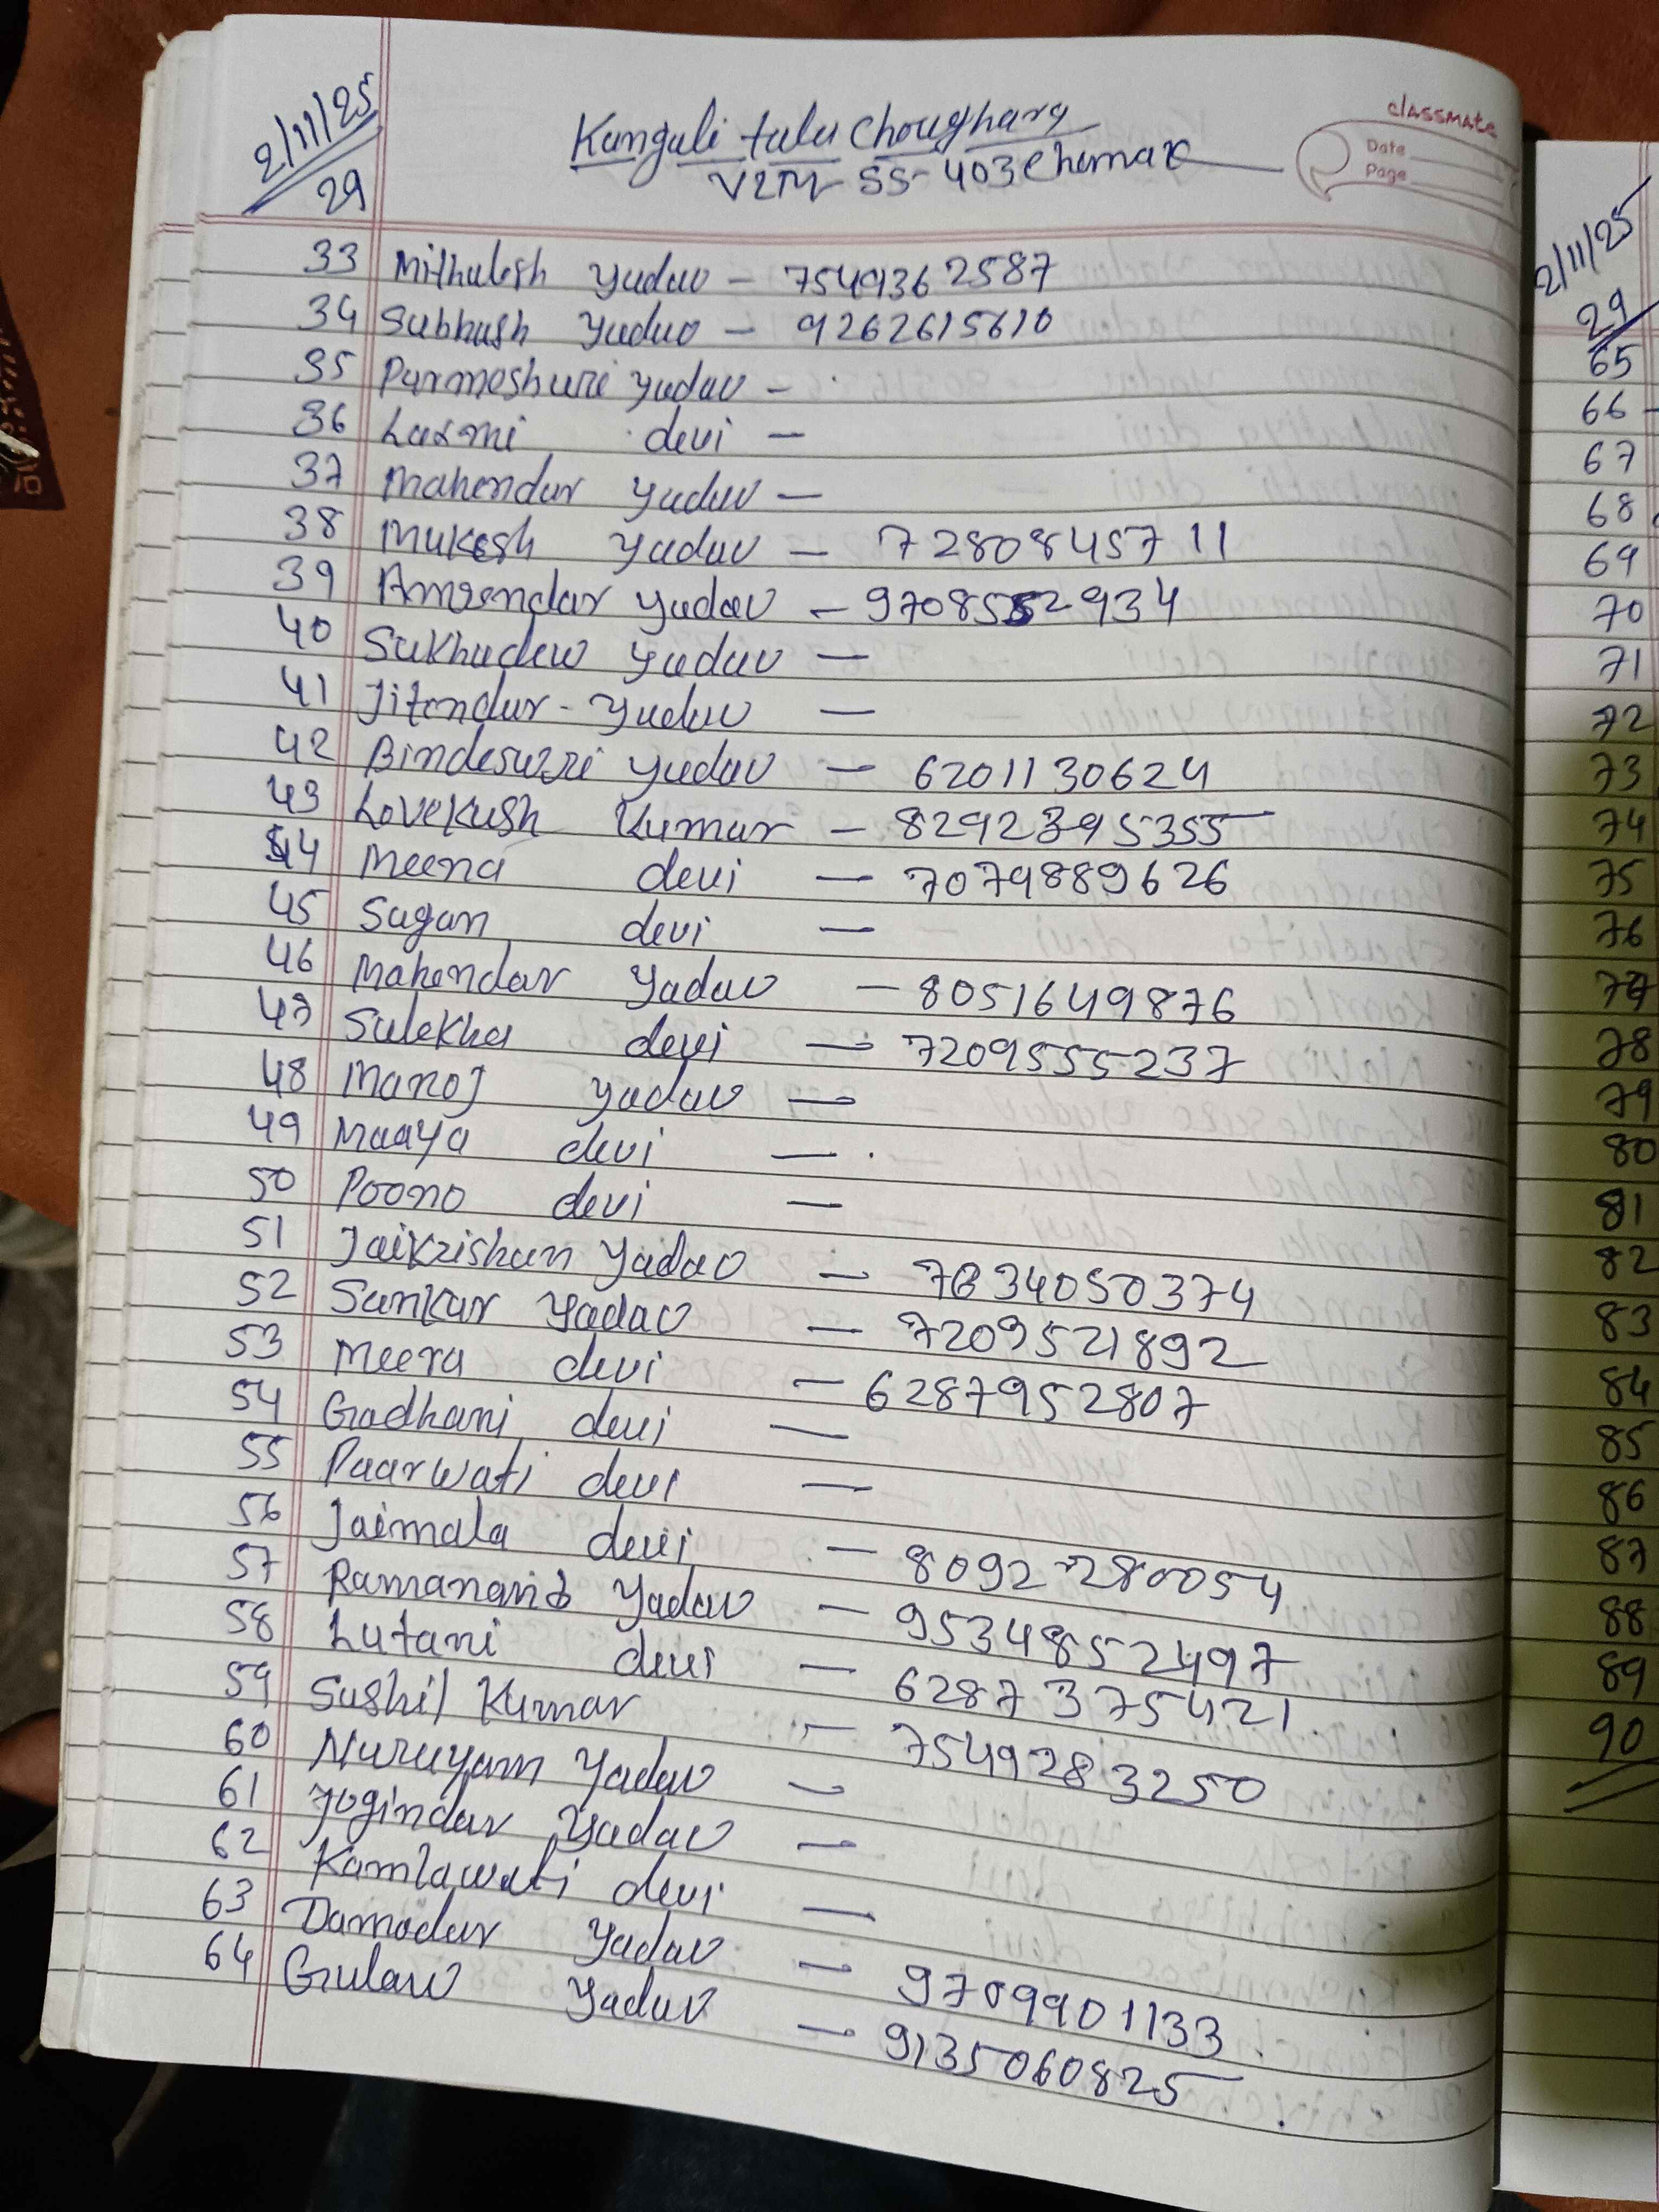 2/11/25
29
Kanguli tulu Choughara
V2M SS-403 Chemax
classmate
Date
Page
33 Mithulesh Yadav - 7549362587
34 Subhash Yadav - 9262615610
35 Parmeshwri Yadav -
36 Laxmi devi -
37 Mahendar Yadav -
38 Mukesh Yadav - 7280845711
39 Amrendar Yadav - 9708552934
40 Sukhadew Yadav -
41 Jitendar - Yadav -
42 Bindeswri Yadav - 6201130624
43 Lovekush Kumar - 8292395355
44 Meena devi - 7079889626
45 Sugan devi -
46 Mahendar Yadav - 8051649876
47 Sulekha devi - 7209555237
48 Manoj Yadav -
49 Maaya devi -
50 Poono devi -
51 Jaikrishan Yadav -
52 Sunkar Yadav - 7209521892
53 Meera devi - 6287952807
54 Gadhani devi -
55 Paarwati devi -
56 Jaimala devi - 8092280054
57 Ramanand Yadav - 9534852497
58 Lutani devi - 6287375421
59 Sushil Kumar - 7549283250
60 Narayam Yadav -
61 Jogindar Yadav -
62 Kamlawati devi -
63 Damodar Yadav - 9709901133
64 Gulaw Yadav - 9135060825
2/11/25
29
65
66 -
67
68
69
70
71
72
73
74
75
76
77
78
79
80
81
82
83
84
85
86
87
88
89
90